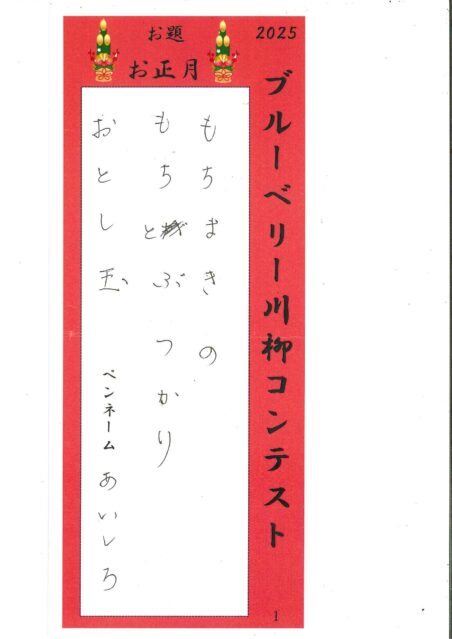 2025
ブルーベリー川柳コンテスト
1
お題
お正月
もちまきの
もちとぶつかり
おとし玉
ペンネーム あいしろ